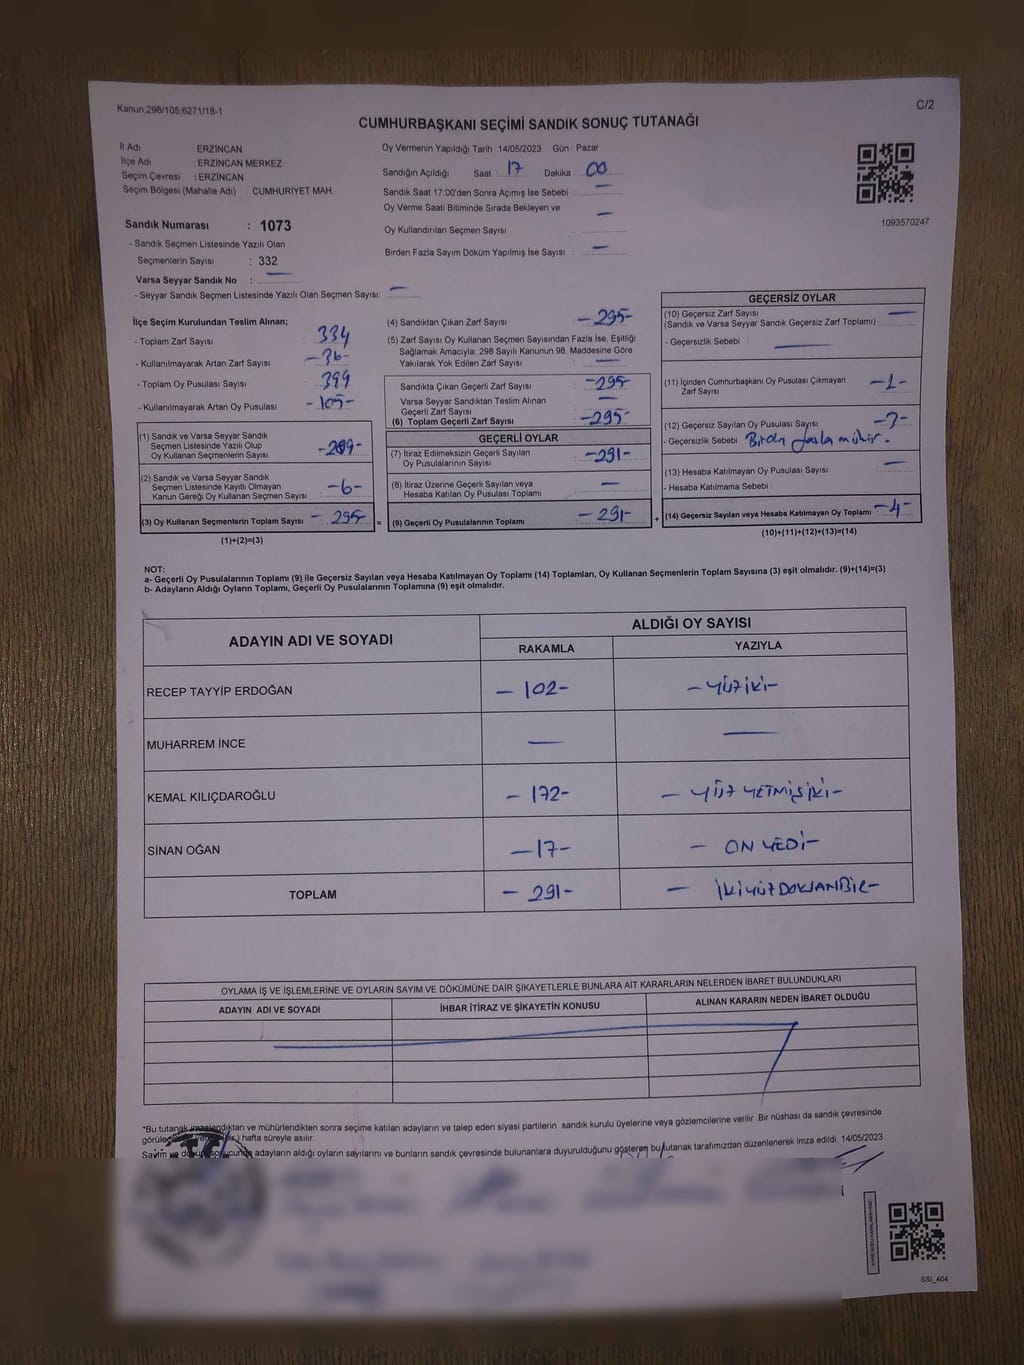 Kanun:298/105;6271/18-1
C/2
CUMHURBAŞKANI SEÇİMİ SANDIK SONUÇ TUTANAĞI
İl Adı : ERZİNCAN
İlçe Adı : ERZİNCAN MERKEZ
Seçim Çevresi : ERZİNCAN
Seçim Bölgesi (Mahalle Adı) : CUMHURİYET MAH.
Oy Vermenin Yapıldığı Tarih :14/05/2023 Gün : Pazar
Sandığın Açıldığı Saat : 17 Dakika : 00
Sandık Saat 17:00'den Sonra Açımış İse Sebebi : —
Oy Verme Saati Bitiminde Sırada Bekleyen ve
Oy Kullandırılan Seçmen Sayısı : —
Birden Fazla Sayım Döküm Yapılmış İse Sayısı : —
1093570247
Sandık Numarası : 1073
- Sandık Seçmen Listesinde Yazılı Olan
Seçmenlerin Sayısı : 332
Varsa Seyyar Sandık No : —
- Seyyar Sandık Seçmen Listesinde Yazılı Olan Seçmen Sayısı: —
İlçe Seçim Kurulundan Teslim Alınan;
- Toplam Zarf Sayısı : 334
- Kullanılmayarak Artan Zarf Sayısı : -36-
- Toplam Oy Pusulası Sayısı : 399
- Kullanılmayarak Artan Oy Pusulası : -105-
(1) Sandık ve Varsa Seyyar Sandık
Seçmen Listesinde Yazılı Olup
Oy Kullanan Seçmenlerin Sayısı -289-
(2) Sandık ve Varsa Seyyar Sandık
Seçmen Listesinde Kayıtlı Olmayan
Kanun Gereği Oy Kullanan Seçmen Sayısı -6-
(3) Oy Kullanan Seçmenlerin Toplam Sayısı -295- =
(1)+(2)=(3)
(4) Sandıktan Çıkan Zarf Sayısı : -295-
(5) Zarf Sayısı Oy Kullanan Seçmen Sayısından Fazla İse, Eşitliği
Sağlamak Amacıyla; 298 Sayılı Kanunun 98. Maddesine Göre
Yakılarak Yok Edilen Zarf Sayısı : —
Sandıkta Çıkan Geçerli Zarf Sayısı : -295-
Varsa Seyyar Sandıktan Teslim Alınan
Geçerli Zarf Sayısı : —
(6) Toplam Geçerli Zarf Sayısı : -295-
GEÇERLİ OYLAR
(7) İtiraz Edilmeksizin Geçerli Sayılan
Oy Pusulalarının Sayısı : -291-
(8) İtiraz Üzerine Geçerli Sayılan veya
Hesaba Katılan Oy Pusulası Toplamı : —
(9) Geçerli Oy Pusulalarının Toplamı : -291- +
GEÇERSİZ OYLAR
(10) Geçersiz Zarf Sayısı : —
(Sandık ve Varsa Seyyar Sandık Geçersiz Zarf Toplamı)
- Geçersizlik Sebebi : —
(11) İçinden Cumhurbaşkanı Oy Pusulası Çıkmayan
Zarf Sayısı : -1-
(12) Geçersiz Sayılan Oy Pusulası Sayısı : -3-
- Geçersizlik Sebebi : Birden fazla mühür.
(13) Hesaba Katılmayan Oy Pusulası Sayısı : —
- Hesaba Katılmama Sebebi :
(14) Geçersiz Sayılan veya Hesaba Katılmayan Oy Toplamı : -4-
(10)+(11)+(12)+(13)=(14)
NOT:
a- Geçerli Oy Pusulalarının Toplamı (9) ile Geçersiz Sayılan veya Hesaba Katılmayan Oy Toplamı (14) Toplamları, Oy Kullanan Seçmenlerin Toplam Sayısına (3) eşit olmalıdır. (9)+(14)=(3)
b- Adayların Aldığı Oyların Toplamı, Geçerli Oy Pusulalarının Toplamına (9) eşit olmalıdır.
ADAYIN ADI VE SOYADI ALDIĞI OY SAYISI
RAKAMLA YAZIYLA
RECEP TAYYİP ERDOĞAN -102- -YÜZ İKİ-
MUHARREM İNCE — —
KEMAL KILIÇDAROĞLU -172- -YÜZ YETMİŞ İKİ-
SİNAN OĞAN -17- -ON YEDİ-
TOPLAM -291- -İKİYÜZ DOKSANBİR-
OYLAMA İŞ VE İŞLEMLERİNE VE OYLARIN SAYIM VE DÖKÜMÜNE DAİR ŞİKAYETLERLE BUNLARA AİT KARARLARIN NELERDEN İBARET BULUNDUKLARI
ADAYIN ADI VE SOYADI İHBAR İTİRAZ VE ŞİKAYETİN KONUSU ALINAN KARARIN NEDEN İBARET OLDUĞU
*Bu tutanak imzalandıktan ve mühürlendikten sonra seçime katılan adayların ve talep eden siyasi partilerin sandık kurulu üyelerine veya gözlemcilerine verilir .Bir nüshası da sandık çevresinde
hafta süreyle asılır.
Sayım ve döküm sonucunda adayların aldığı oyların sayılarını ve bunların sandık çevresinde bulunanlara duyurulduğunu gösteren bu tutanak tarafımızdan düzenlenerek imza edildi. 14/05/2023
SSİ_404